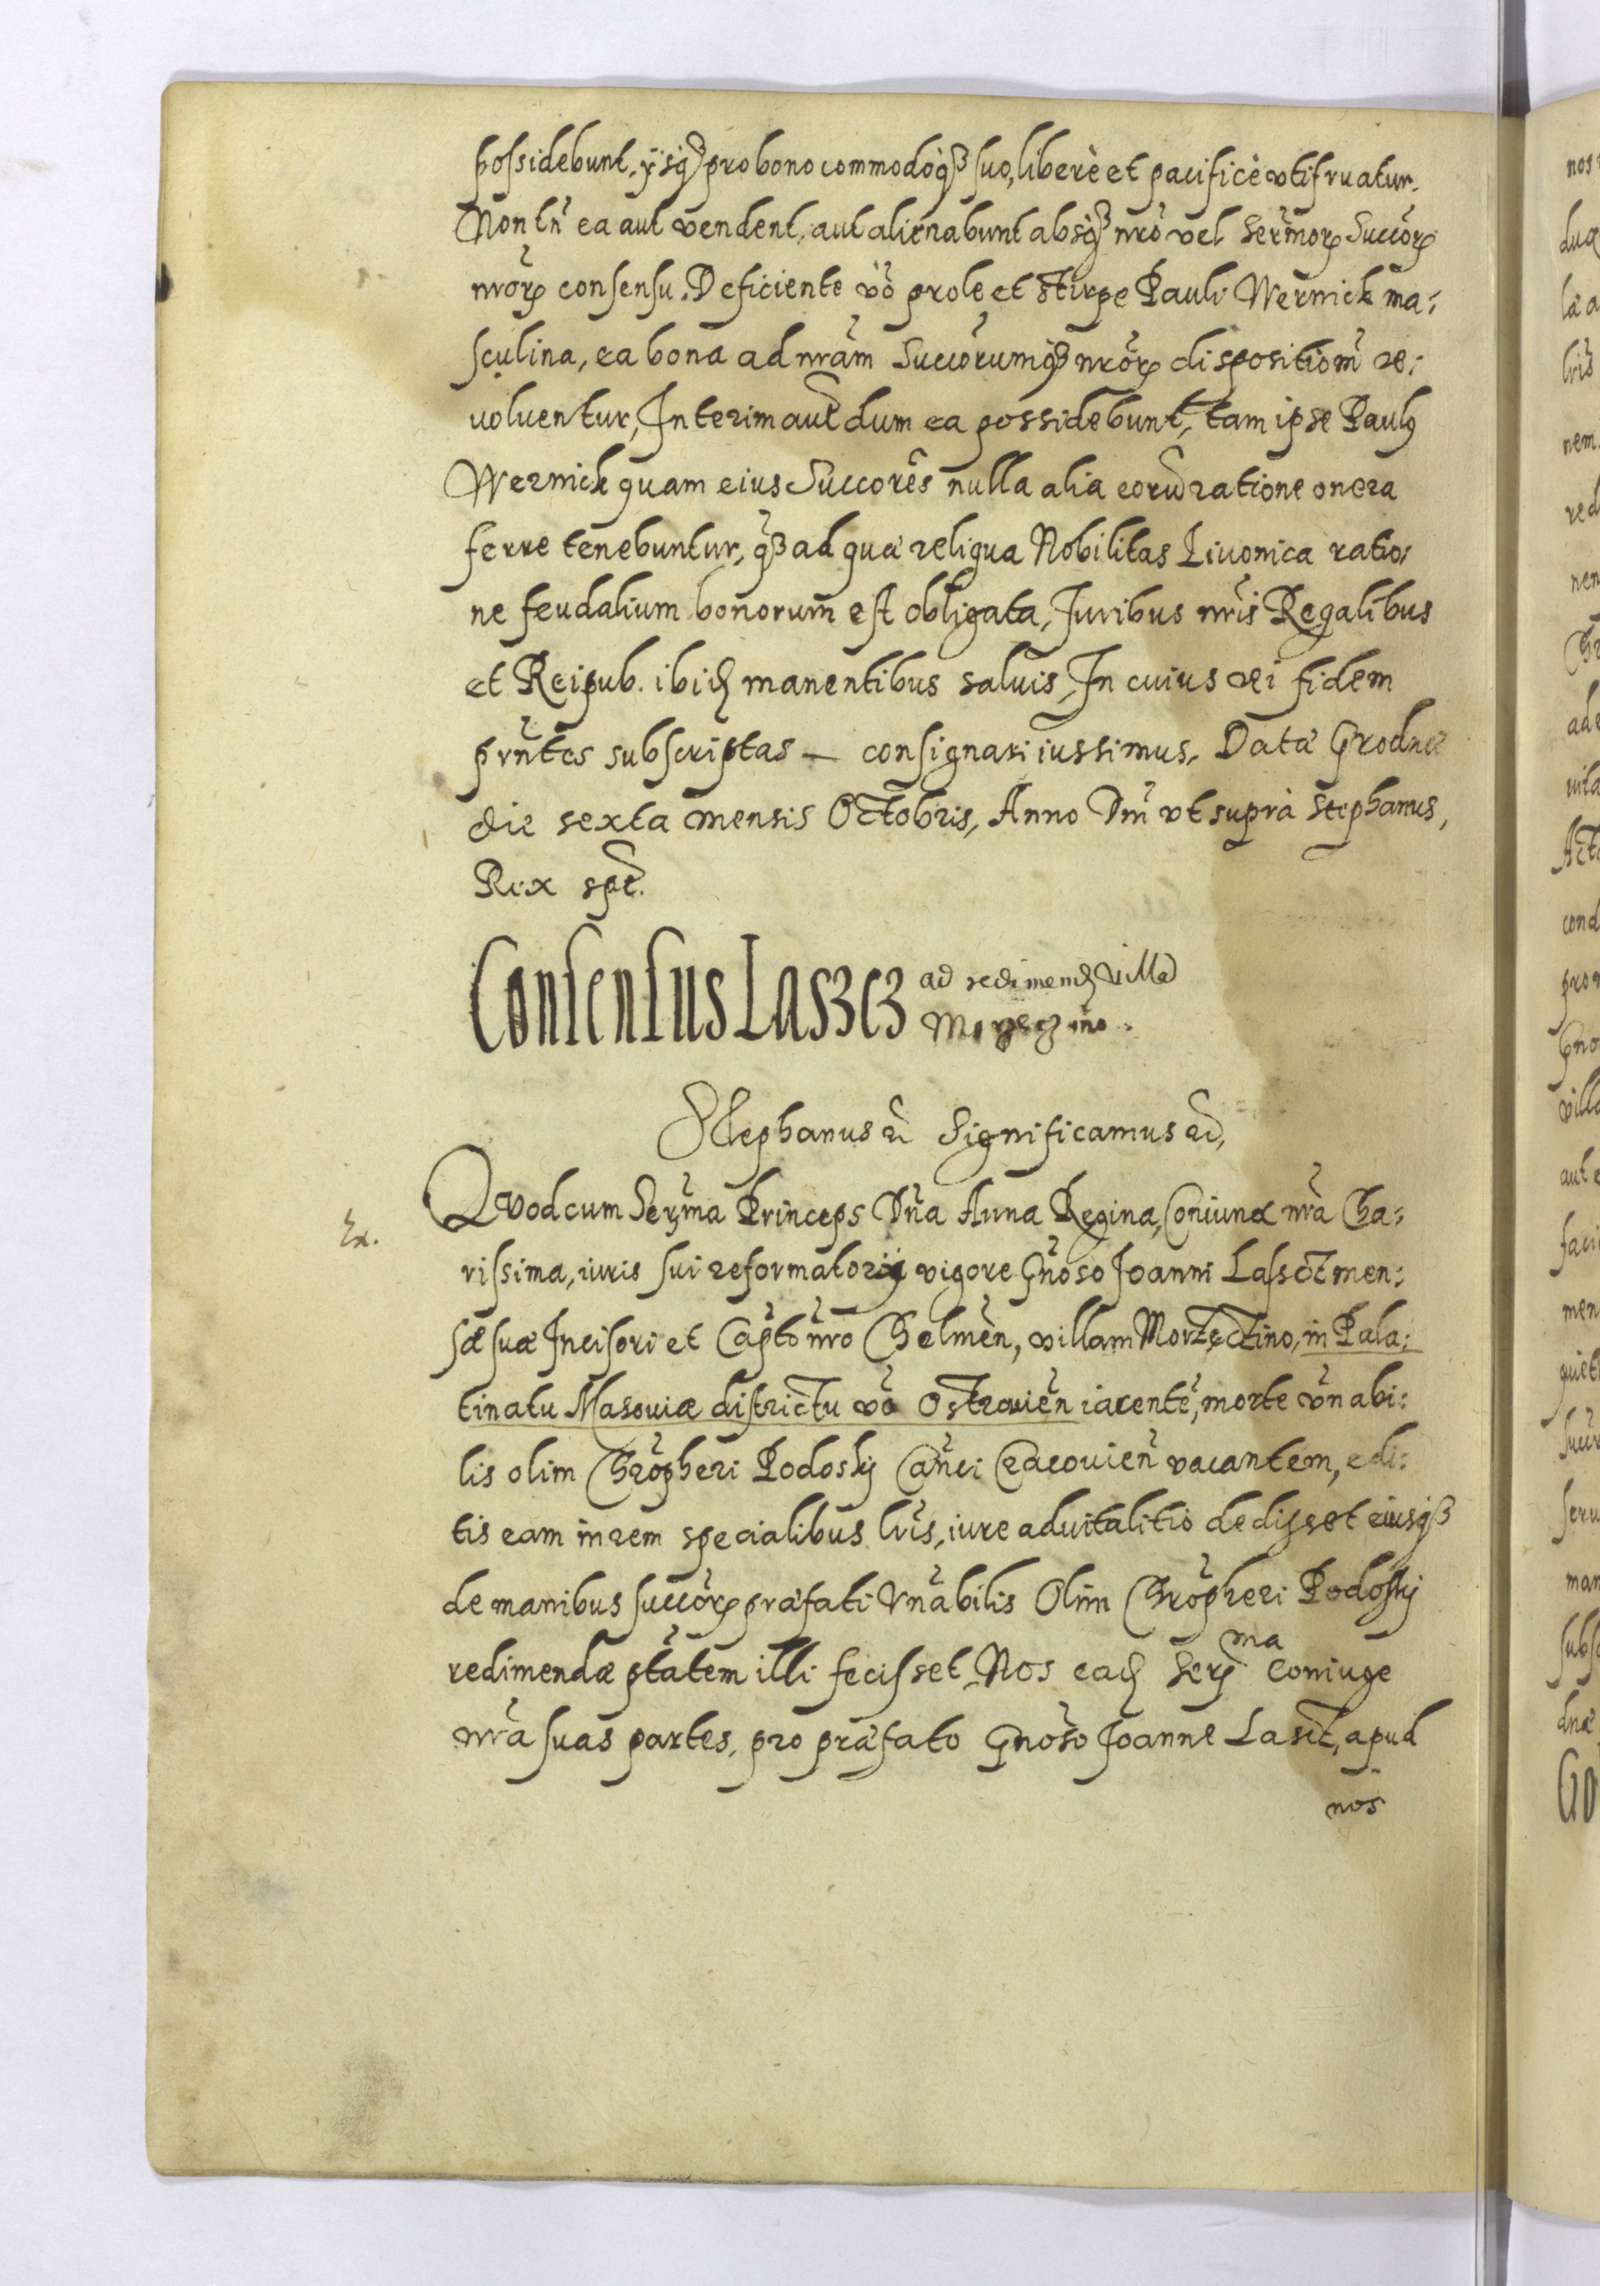 possidebunt, ijsq3 pro bono commodoq3 suo, liberè et pacificè vtifruatur.
Non tn ea aut vendent, aut alienabunt absq3 nro vel Sermor Succor
nror consensu. Deficiente vo prole et stirpe Pauli Wernick ma:
sculina, ea bona ad nram Succorumq3 nror dispositiom re:
uoluentur, Interim aut dum ea possidebunt, tam ipse Paul9
Wernick quam eius Succores nulla alia eoru ratione onera
ferre tenebuntur, q3 ad quæ reliqua Nobilitas Liuonica ratio:
ne feudalium bonorum est obligata, Iuribus nris Regalibus
et Reipub. ibid manentibus saluis, In cuius rei fidem
prntes subscriptas — consignari iussimus, Datæ Grodnæ
die sexta mensis Octobris, Anno Dni vt suprà Stephanus,
Rex spt.
Consensus Laszcz ad redimend villā
Stephanus &c Significamus &c,
Ex.
Quod cum Serma Princeps Dna Anna Regina, Coniunx nra Cha:
rissima, iuris sui reformatorij vigore Gnoso Joanni Lassot men:
sæ suæ Incisori et Capto nro Chelmen, villam Morzectino, in Pala:
tinatu Masouiæ districtu vo Ostrouien iacente, morte Vnabi:
lis olim Chropheri Podosky Canci Cracouien vacantem, edi:
tis eam in rem specialibus lris, iure aduitalitio dedisset eiusq3
de manibus succor præfati Vnabilis Olim Chropheri Podosky
redimendæ ptatem illi fecisset, Nos ead Ser ma Coniuge
nra suas partes, pro præfato Gnoso Joanne Lasot, apud
nos